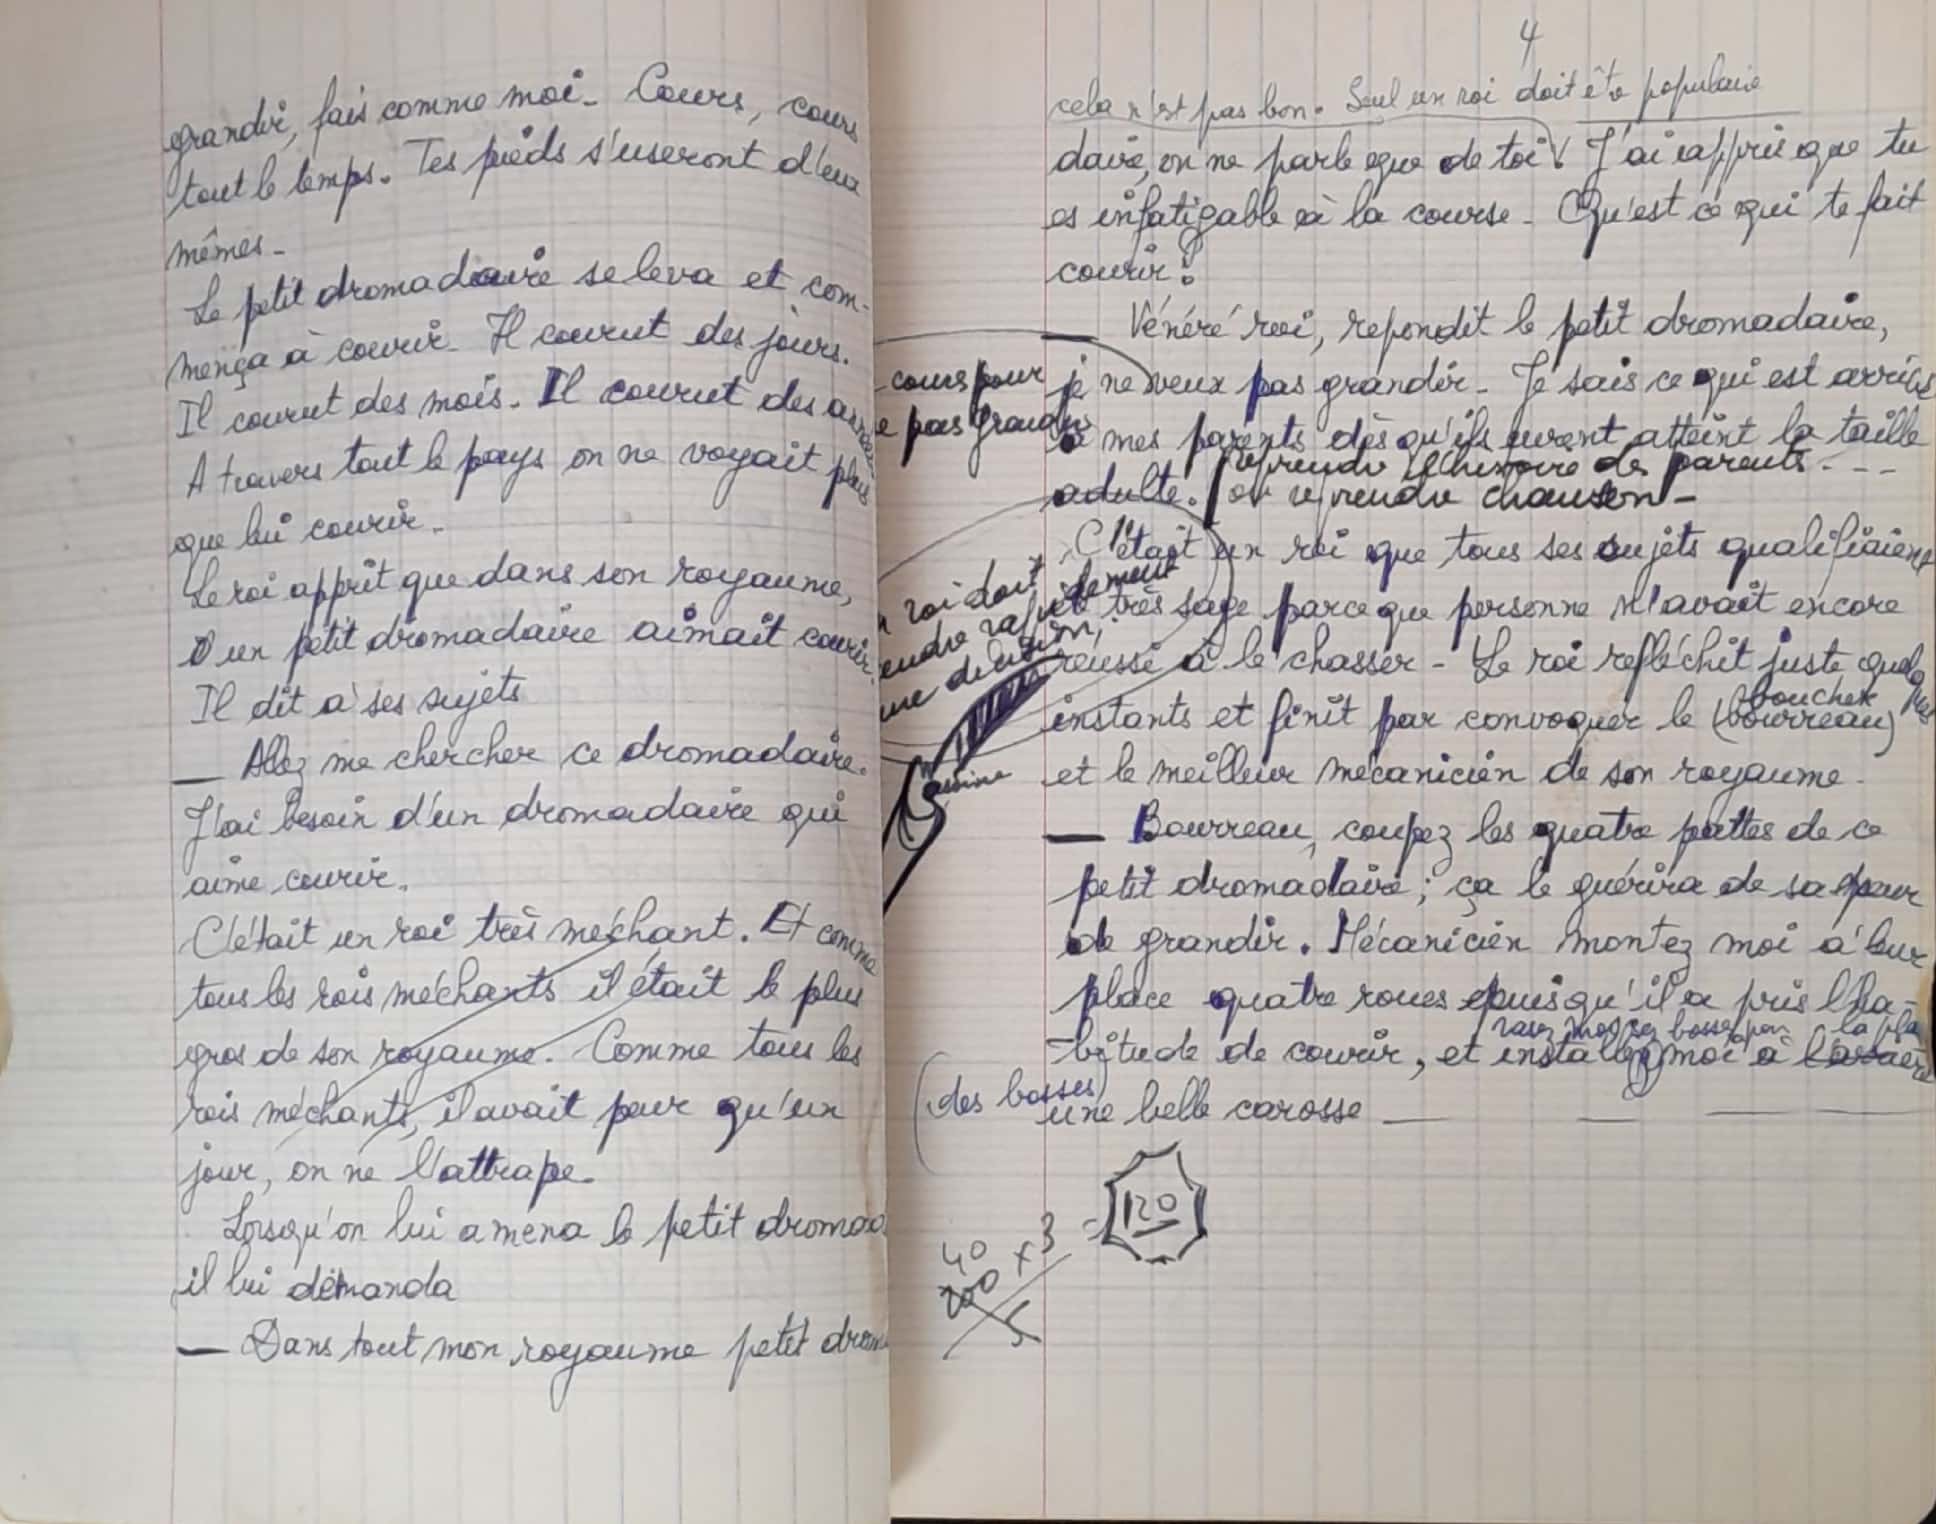 grandir, fais comme moi. Cours, cours
tout le temps. Tes pieds s'useront d'eux
mêmes.
Le petit dromadaire se leva et com-
mença à courir. Il courut des jours.
Il courut des mois. Il courut des années
A travers tout le pays on ne voyait plus
que lui courir.
Le roi apprit que dans son royaume,
un petit dromadaire aimait courir.
Il dit à ses sujets
— Allez me chercher ce dromadaire.
J'ai besoin d'un dromadaire qui
aime courir.
C'était un roi très méchant. Et comme
tous les rois méchants il était le plus
gros de son royaume. Comme tous les
rois méchants, il avait peur qu'un
jour, on ne l'attrape.
Lorsqu'on lui amena le petit dromad
il lui demanda
— Dans tout mon royaume petit drom
4
cela n'est pas bon. Seul un roi doit être populaire
daire, on ne parle que de toi! J'ai appris que tu
es infatigable à la course. Qu'est ce qui te fait
courir?
— Vénéré roi, repondit le petit dromadaire,
cours pour
je ne veux pas grandir. Je sais ce qui est arrivé
e pas grandir
à mes parents dès qu'ils eurent atteint la taille
reprendre l'histoire des parents...
adulte. ou reprendre chanson -
C'était un roi que tous ses sujets qualifiaient
roi doit
rapidement
de très sage parce que personne n'avait encore
endre
une décision,
réussi à le chasser. Le roi refléchit juste quelques
boucher
instants et finit par convoquer le (bourreau)
et le meilleur mécanicien de son royaume.
— Bourreau, coupez les quatre pattes de ce
petit dromadaire; ça le guérira de sa peur
de grandir. Mécanicien montez moi à leur
place quatre roues puisqu'il a pris l'ha-
rasez moi ses bosses la pla
bitude de courir, et installez moi à
(des bosses)
une belle carosse
40 x 3 = 120
200
5